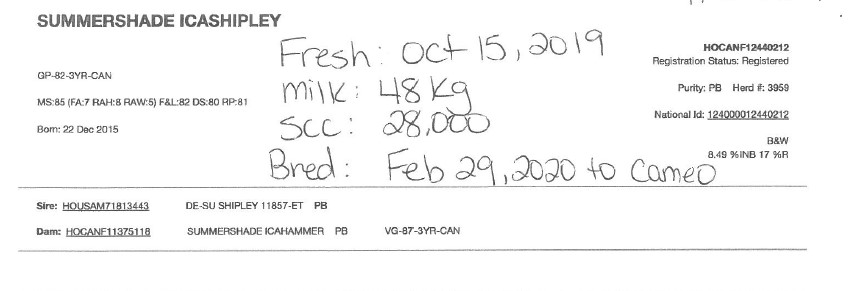 SUMMERSHADE ICASHIPLEY
Fresh: Oct 15, 2019
HOCANF12440212
Registration Status: Registered
GP-82-3YR-CAN
Milk: 48 Kg
Purity: PB Herd #: 3959
MS:85 (FA:7 RAH:8 RAW:5) F&L:82 DS:80 RP:81
SCC: 28,000
National Id: 124000012440212
Born: 22 Dec 2015
B&W
8.49 %INB 17 %R
Bred: Feb 29, 2020 to Cameo
Sire: HOUSAM71813443 DE-SU SHIPLEY 11857-ET PB
Dam: HOCANF11375118 SUMMERSHADE ICAHAMMER PB VG-87-3YR-CAN